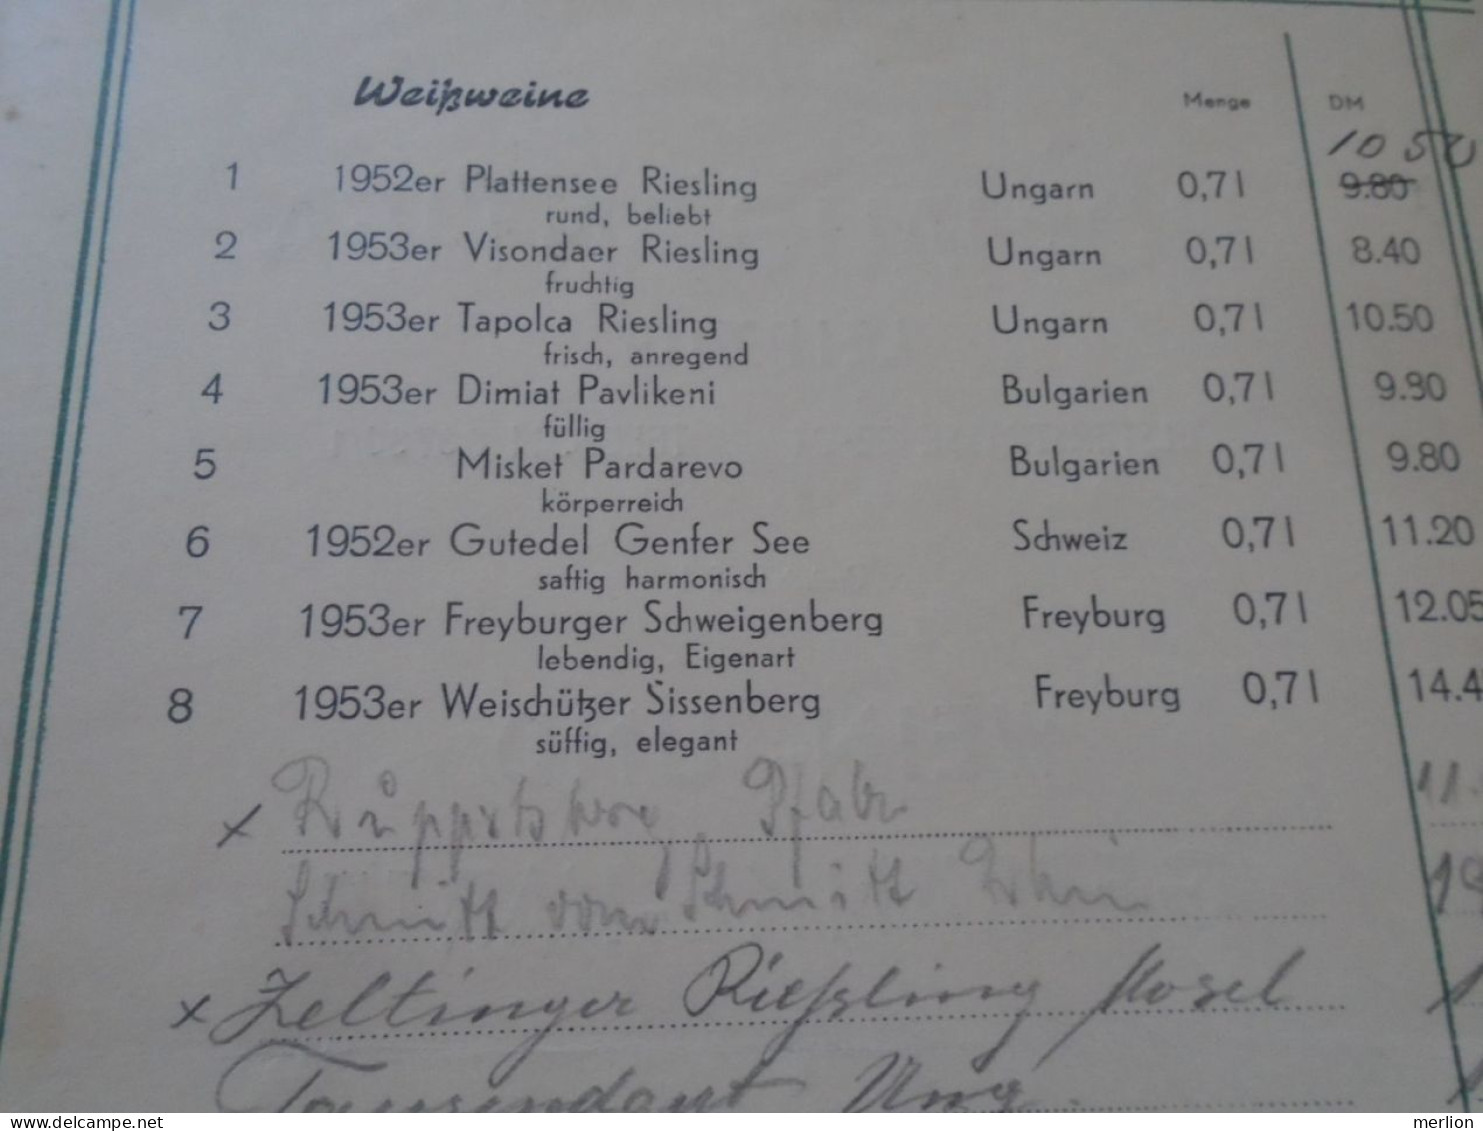 Weißweine Menge DM
10 50
1 1952er Plattensee Riesling Ungarn 0,7 l 9.80
rund, beliebt
2 1953er Visondaer Riesling Ungarn 0,7 l 8.40
fruchtig
3 1953er Tapolca Riesling Ungarn 0,7 l 10.50
frisch, anregend
4 1953er Dimiat Pavlikeni Bulgarien 0,7 l 9.80
füllig
5 Misket Pardarevo Bulgarien 0,7 l 9.80
körperreich
6 1952er Gutedel Genfer See Schweiz 0,7 l 11.20
saftig harmonisch
7 1953er Freyburger Schweigenberg Freyburg 0,7 l 12.05
lebendig, Eigenart
8 1953er Weischützer Sissenberg Freyburg 0,7 l 14.4
süffig, elegant
x Pfalz 11.
Schmitt vom Schmitt Rhein
x Zeltinger Rießling Mosel
Tausendgut Ung.
www.delcampe.net merlion